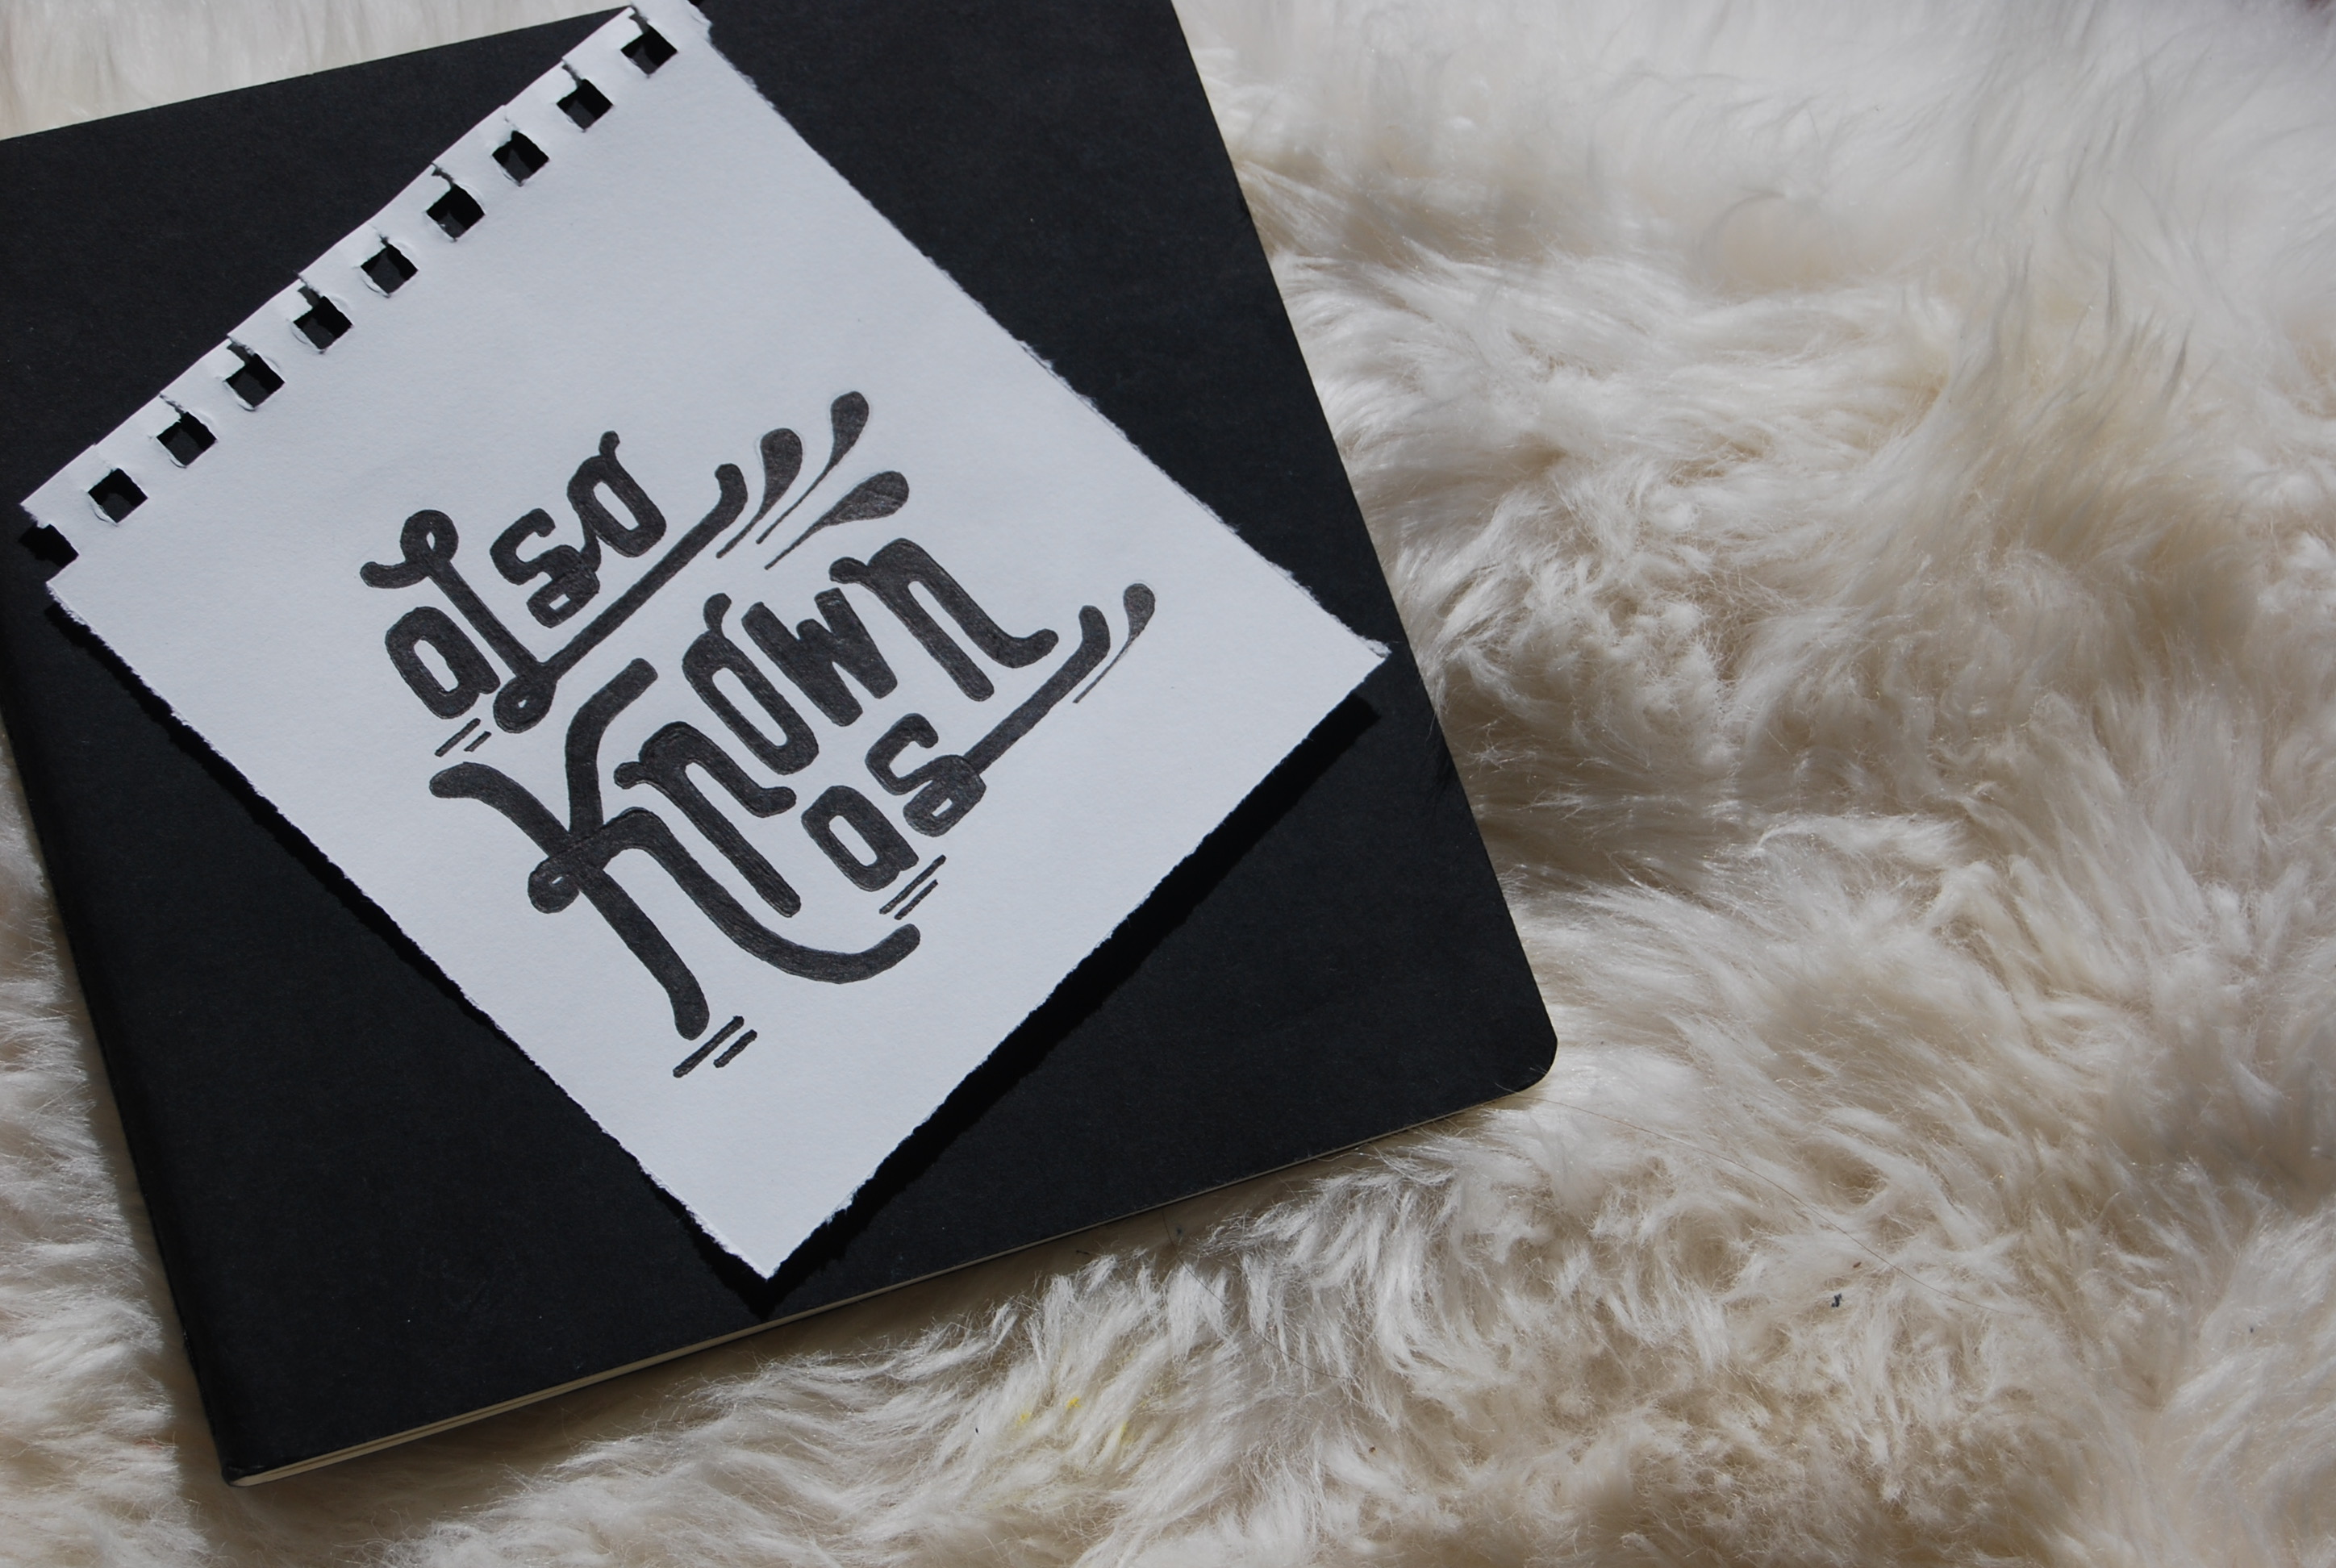 also
Known
as